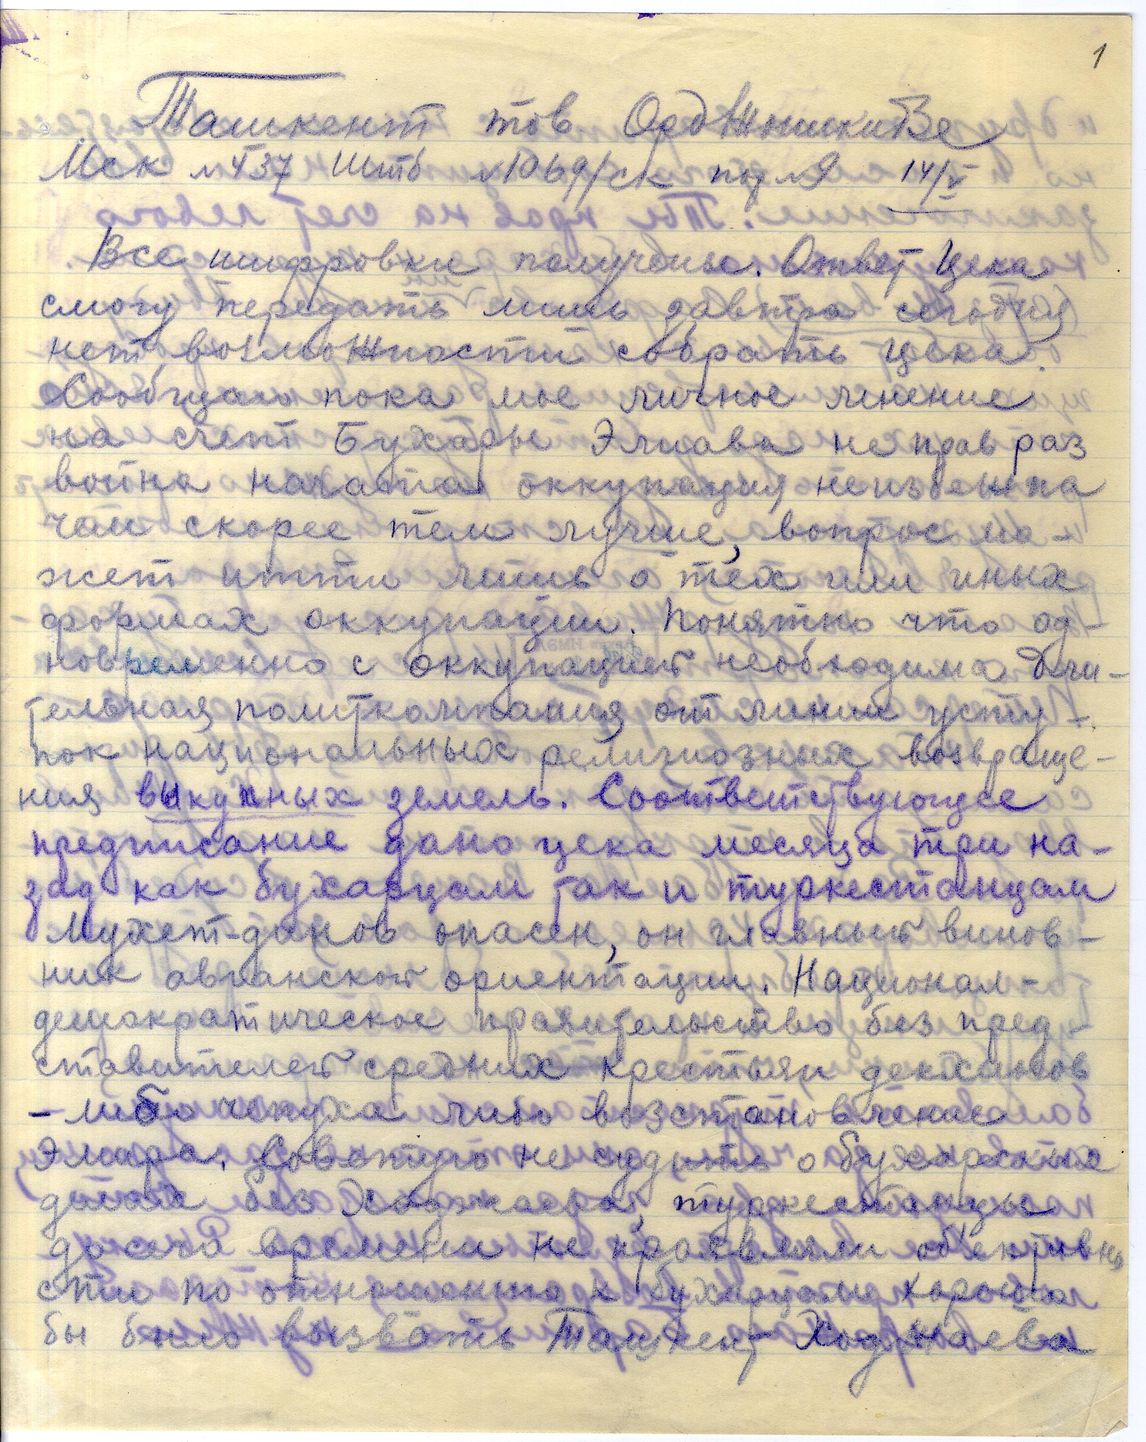 1
Ташкент тов Орджоникидзе
Мск №437 Штб №1069/ск пог №9 14/V
Все шифровки получены. Ответ Цека
смогу передать лишь завтра сегодня
нет возможности собрать цека.
Сообщаю пока мое личное мнение
на счет Бухары Элиава не прав раз
война начата оккупация неизбежна
чем скорее тем лучше, вопрос мо-
жет итти лишь о тех или иных
формах оккупации. Понятно что од-
новременно с оккупацией необходима дли-
тельная политкомпания от линии усту-
пок национальных религиозных возвраще-
ния выкупных земель. Соответствующее
предписание дано цека месяца три на-
зад как бухарцам так и туркестанцам
Мухет-динов опасен, он главный винов-
ник авганской ориентации. Национал-
демократическое правительство без пред-
ставителей средних крестьян декханов
-либо чепуха либо возстановление
Эмира. Советую не судить о бухарских
делах без Ходжаева, туркестанцы
до сего времени не проявляли об'ективно
сти по отношению к бухарцам хорошо
бы было вызвать Ташкент Ходжаева